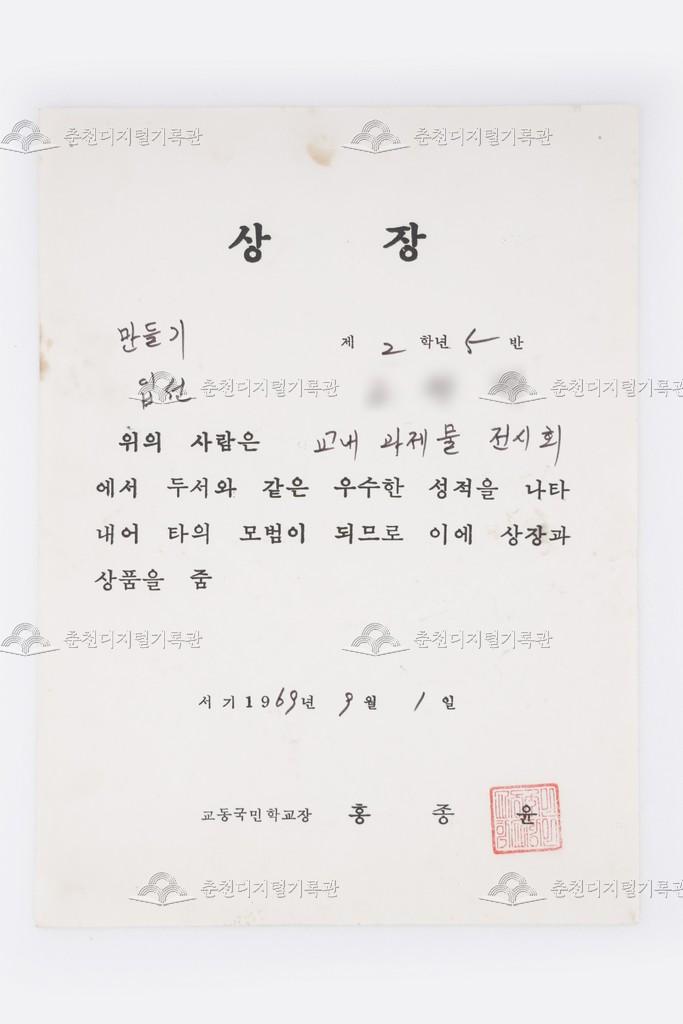 춘천디지털기록관 춘천디지털기록관
상 장
만들기 제 2 학년 5 반
입선 춘천디지털기록관 춘천디지털기록관
위의 사람은 교내 과제물 전시회
에서 두서와 같은 우수한 성적을 나타
내어 타의 모범이 되므로 이에 상장과
상품을 줌
춘천디지털기록관 춘천디지털기록관
서기 1969년 9월 1일
교동국민학교장 홍 종 윤
춘천디지털기록관 춘천디지털기록관